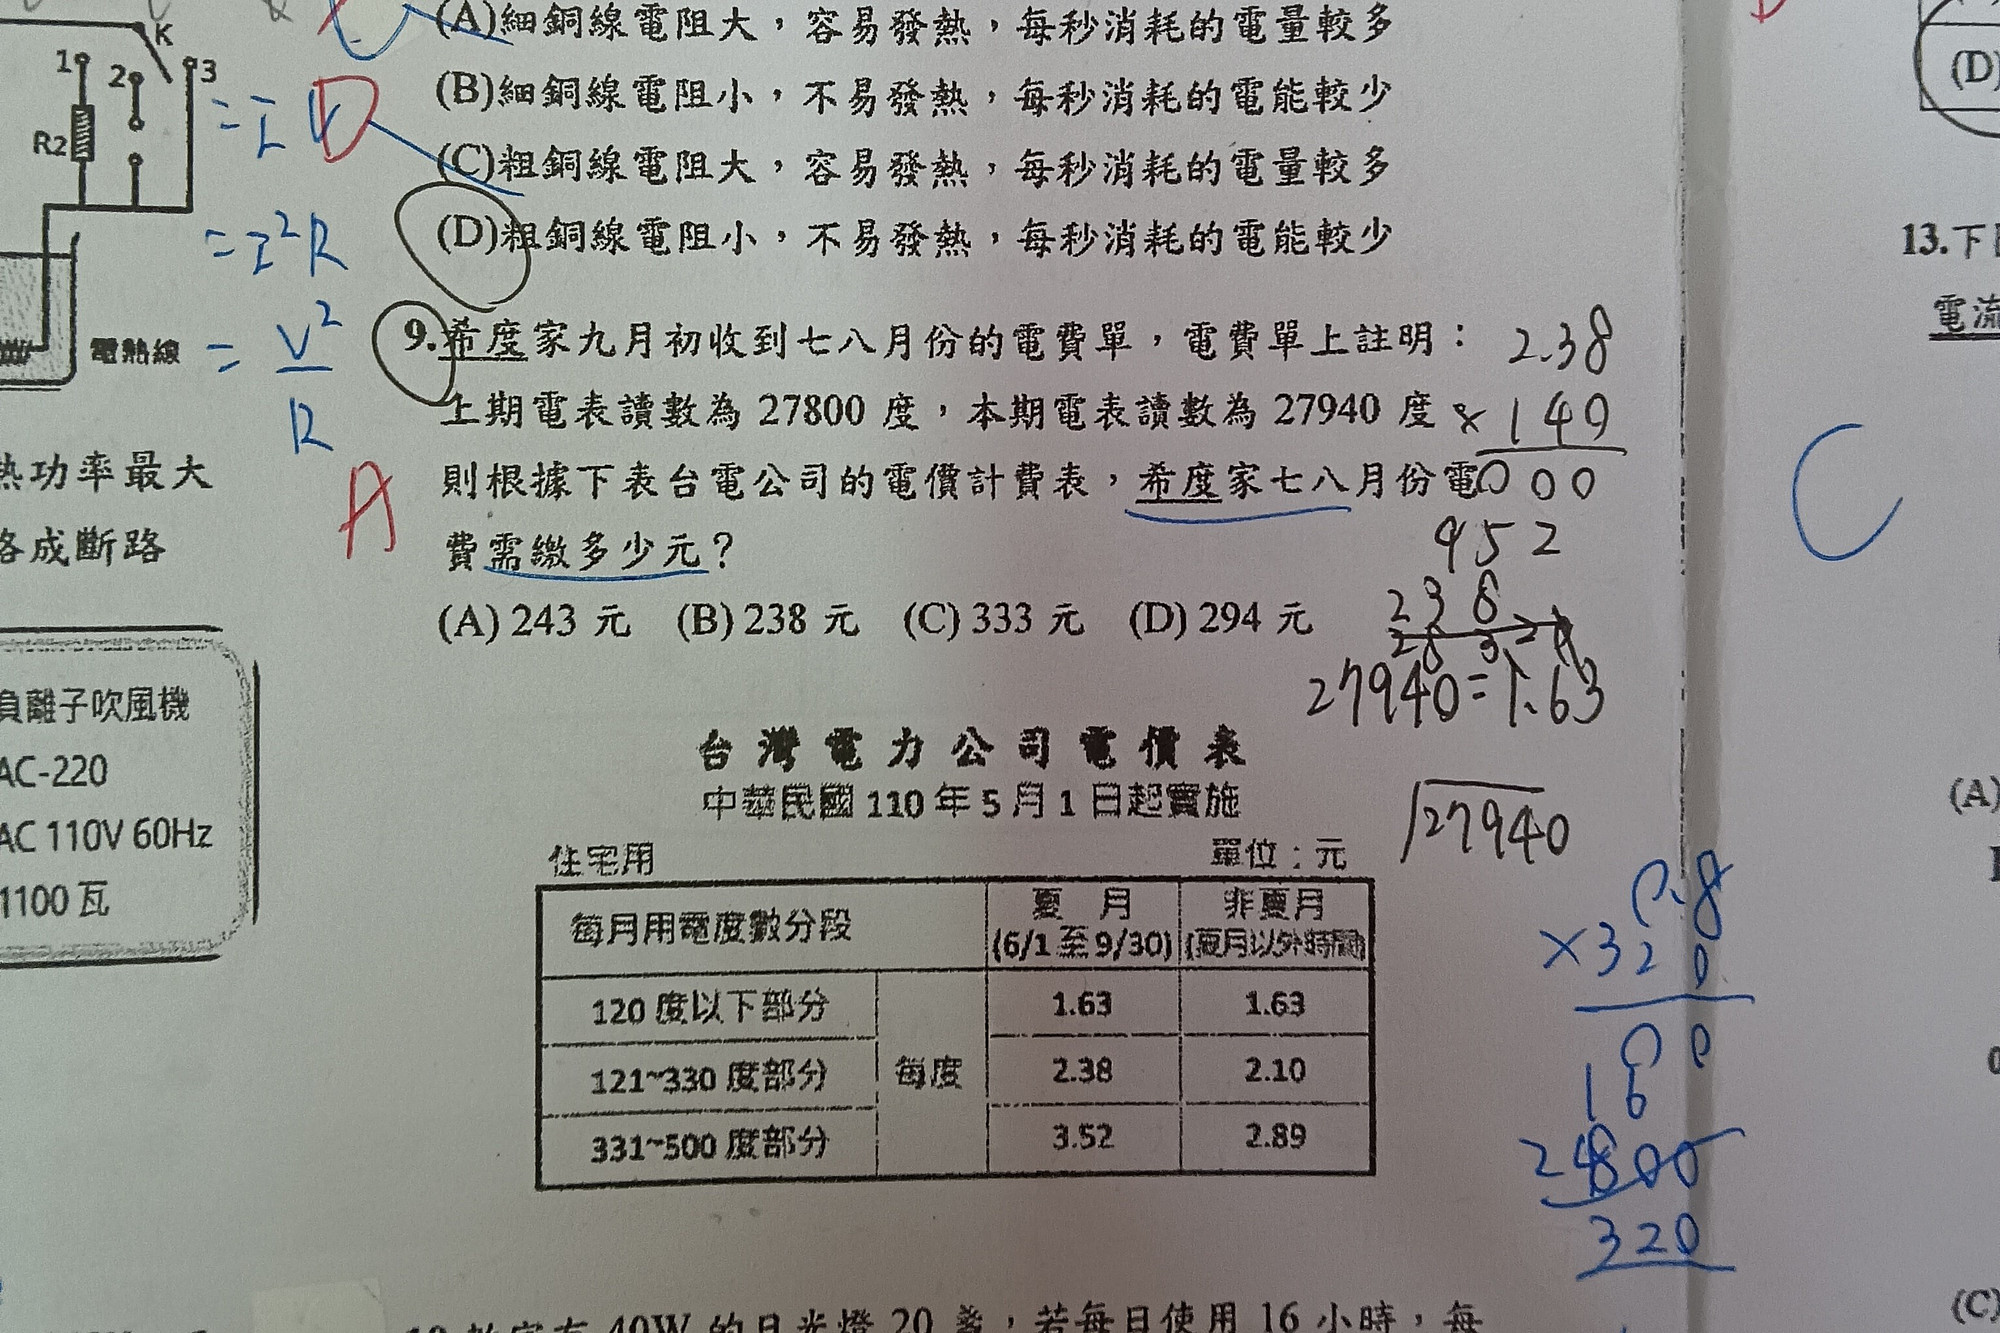 K
1 2 3
R2
電熱線
熱功率最大
路成斷路
負離子吹風機
AC-220
AC 110V 60Hz
1100 瓦
= I V
= I²R
= V²
R
D
(A)細銅線電阻大，容易發熱，每秒消耗的電量較多
(B)細銅線電阻小，不易發熱，每秒消耗的電能較少
(C)粗銅線電阻大，容易發熱，每秒消耗的電量較多
(D)粗銅線電阻小，不易發熱，每秒消耗的電能較少
A
9.希度家九月初收到七八月份的電費單，電費單上註明：
上期電表讀數為 27800 度，本期電表讀數為 27940 度
則根據下表台電公司的電價計費表，希度家七八月份電
費需繳多少元？
(A) 243 元 (B) 238 元 (C) 333 元 (D) 294 元
2.38
× 140
000
952
238
27940=1.63
27940
台灣電力公司電價表
中華民國 110 年 5 月 1 日起實施
住宅用 單位：元
每月用電度數分段 夏 月 非夏月
(6/1 至 9/30) (夏月以外時間)
120 度以下部分 1.63 1.63
121~330 度部分 每度 2.38 2.10
331~500 度部分 3.52 2.89
0.8
×320
00
16
24
320
40W 的日光燈 20 盞，若每日使用 16 小時，每
C
(D)
13.下
電流
(A)
(C)